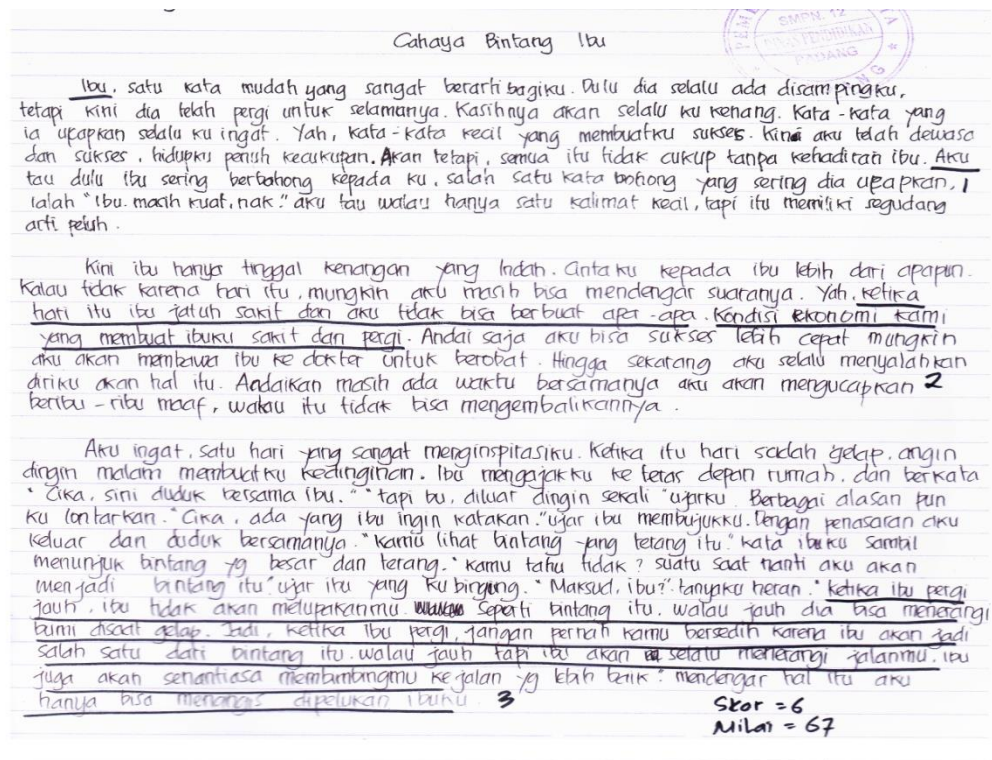 Cahaya Bintang Ibu
SMPN. 12
PADANG
Ibu, satu kata mudah yang sangat berarti bagiku. Dulu dia selalu ada disampingku,
tetapi kini dia telah pergi untuk selamanya. Kasihnya akan selalu ku kenang. Kata-kata yang
ia ucapkan selalu ku ingat. Yah, kata-kata kecil yang membuatku sukses. Kini aku telah dewasa
dan sukses, hidupku penuh kecukupan. Akan tetapi, semua itu tidak cukup tanpa kehadiran ibu. Aku
tau dulu ibu sering berbohong kepada ku, salah satu kata bohong yang sering dia ucapkan, 1
ialah "Ibu masih kuat, nak." aku tau walau hanya satu kalimat kecil, tapi itu memiliki segudang
arti peluh.
Kini ibu hanya tinggal kenangan yang indah. Cinta ku kepada ibu lebih dari apapun.
Kalau tidak karena hari itu, mungkin aku masih bisa mendengar suaranya. Yah, ketika
hari itu ibu jatuh sakit dan aku tidak bisa berbuat apa-apa. Kondisi ekonomi kami
yang membuat ibuku sakit dan pergi. Andai saja aku bisa sukses lebih cepat mungkin
aku akan membawa ibu ke dokter untuk berobat. Hingga sekarang aku selalu menyalahkan
diriku akan hal itu. Andaikan masih ada waktu bersamanya aku akan mengucapkan 2
beribu-ribu maaf, walau itu tidak bisa mengembalikannya.
Aku ingat, satu hari yang sangat menginspirasiku. Ketika itu hari sudah gelap, angin
dingin malam membuatku kedinginan. Ibu mengajakku ke teras depan rumah, dan berkata
"Cika, sini duduk bersama ibu." "tapi bu, diluar dingin sekali" ujarku. Berbagai alasan pun
ku lontarkan. "Cika, ada yang ibu ingin katakan." ujar ibu membujukku. Dengan penasaran aku
keluar dan duduk bersamanya. "Kamu lihat bintang yang terang itu." kata ibuku sambil
menunjuk bintang yg besar dan terang. "kamu tahu tidak? suatu saat nanti aku akan
menjadi bintang itu" ujar ibu yang ku bingung. "Maksud, ibu?" tanyaku heran. "ketika ibu pergi
jauh, ibu tidak akan melupakanmu seperti bintang itu. walau jauh dia bisa menerangi
bumi disaat gelap. Jadi, ketika ibu pergi, jangan pernah kamu bersedih karena ibu akan jadi
salah satu dari bintang itu. walau jauh tapi ibu akan selalu menerangi jalanmu. ibu
juga akan senantiasa membimbingmu ke jalan yg lebih baik" mendengar hal itu aku
hanya bisa menangis dipelukan ibuku. 3
Skor = 6
Nilai = 67